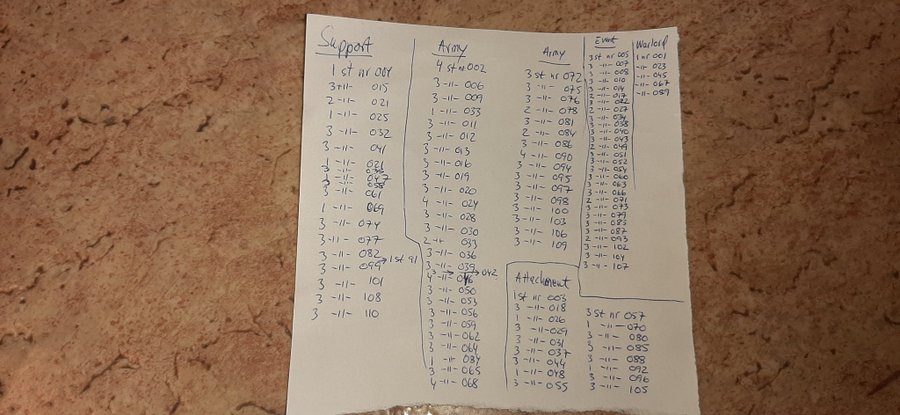 Support
1 st nr 004
3 -11- 015
2 -11- 021
1 -11- 025
3 -11- 032
3 -11- 041
1 -11- 021
1 -11- 047
3 -11- 058
3 -11- 061
1 -11- 069
3 -11- 074
3 -11- 077
3 -11- 082
3 -11- 099 → 1st 91
3 -11- 101
3 -11- 108
3 -11- 110
Army
4 st nr 002
3 -11- 006
3 -11- 009
1 -11- 033
3 -11- 011
3 -11- 012
3 -11- 013
3 -11- 016
3 -11- 019
3 -11- 020
4 -11- 024
3 -11- 028
3 -11- 030
2 -11- 033
3 -11- 036
3 -11- 039
3 → 042
4 -11- 046
3 -11- 050
3 -11- 053
3 -11- 056
3 -11- 059
3 -11- 062
3 -11- 064
1 -11- 084
3 -11- 065
4 -11- 068
Army
3 st nr 072
3 -11- 075
3 -11- 076
2 -11- 078
3 -11- 081
2 -11- 084
3 -11- 086
4 -11- 090
3 -11- 094
3 -11- 095
3 -11- 097
3 -11- 098
3 -11- 100
3 -11- 103
3 -11- 106
3 -11- 109
Event
3 st nr 005
3 -11- 007
3 -11- 008
3 -11- 010
3 -11- 014
2 -11- 017
3 -11- 022
2 -11- 027
3 -11- 034
3 -11- 038
3 -11- 040
3 -11- 043
2 -11- 049
3 -11- 051
3 -11- 052
3 -11- 054
3 -11- 060
3 -11- 063
3 -11- 066
2 -11- 071
3 -11- 073
3 -11- 079
3 -11- 085
3 -11- 087
2 -11- 093
3 -11- 102
3 -11- 104
3 -11- 107
Warlord
1 nr 001
-11- 023
-11- 045
-11- 067
-11- 089
Attachment
1 st nr 003
3 -11- 018
1 -11- 026
3 -11- 029
3 -11- 031
3 -11- 037
3 -11- 044
1 -11- 048
3 -11- 055
3 st nr 057
1 -11- 070
3 -11- 080
3 -11- 085
3 -11- 088
1 -11- 092
3 -11- 096
3 -11- 105